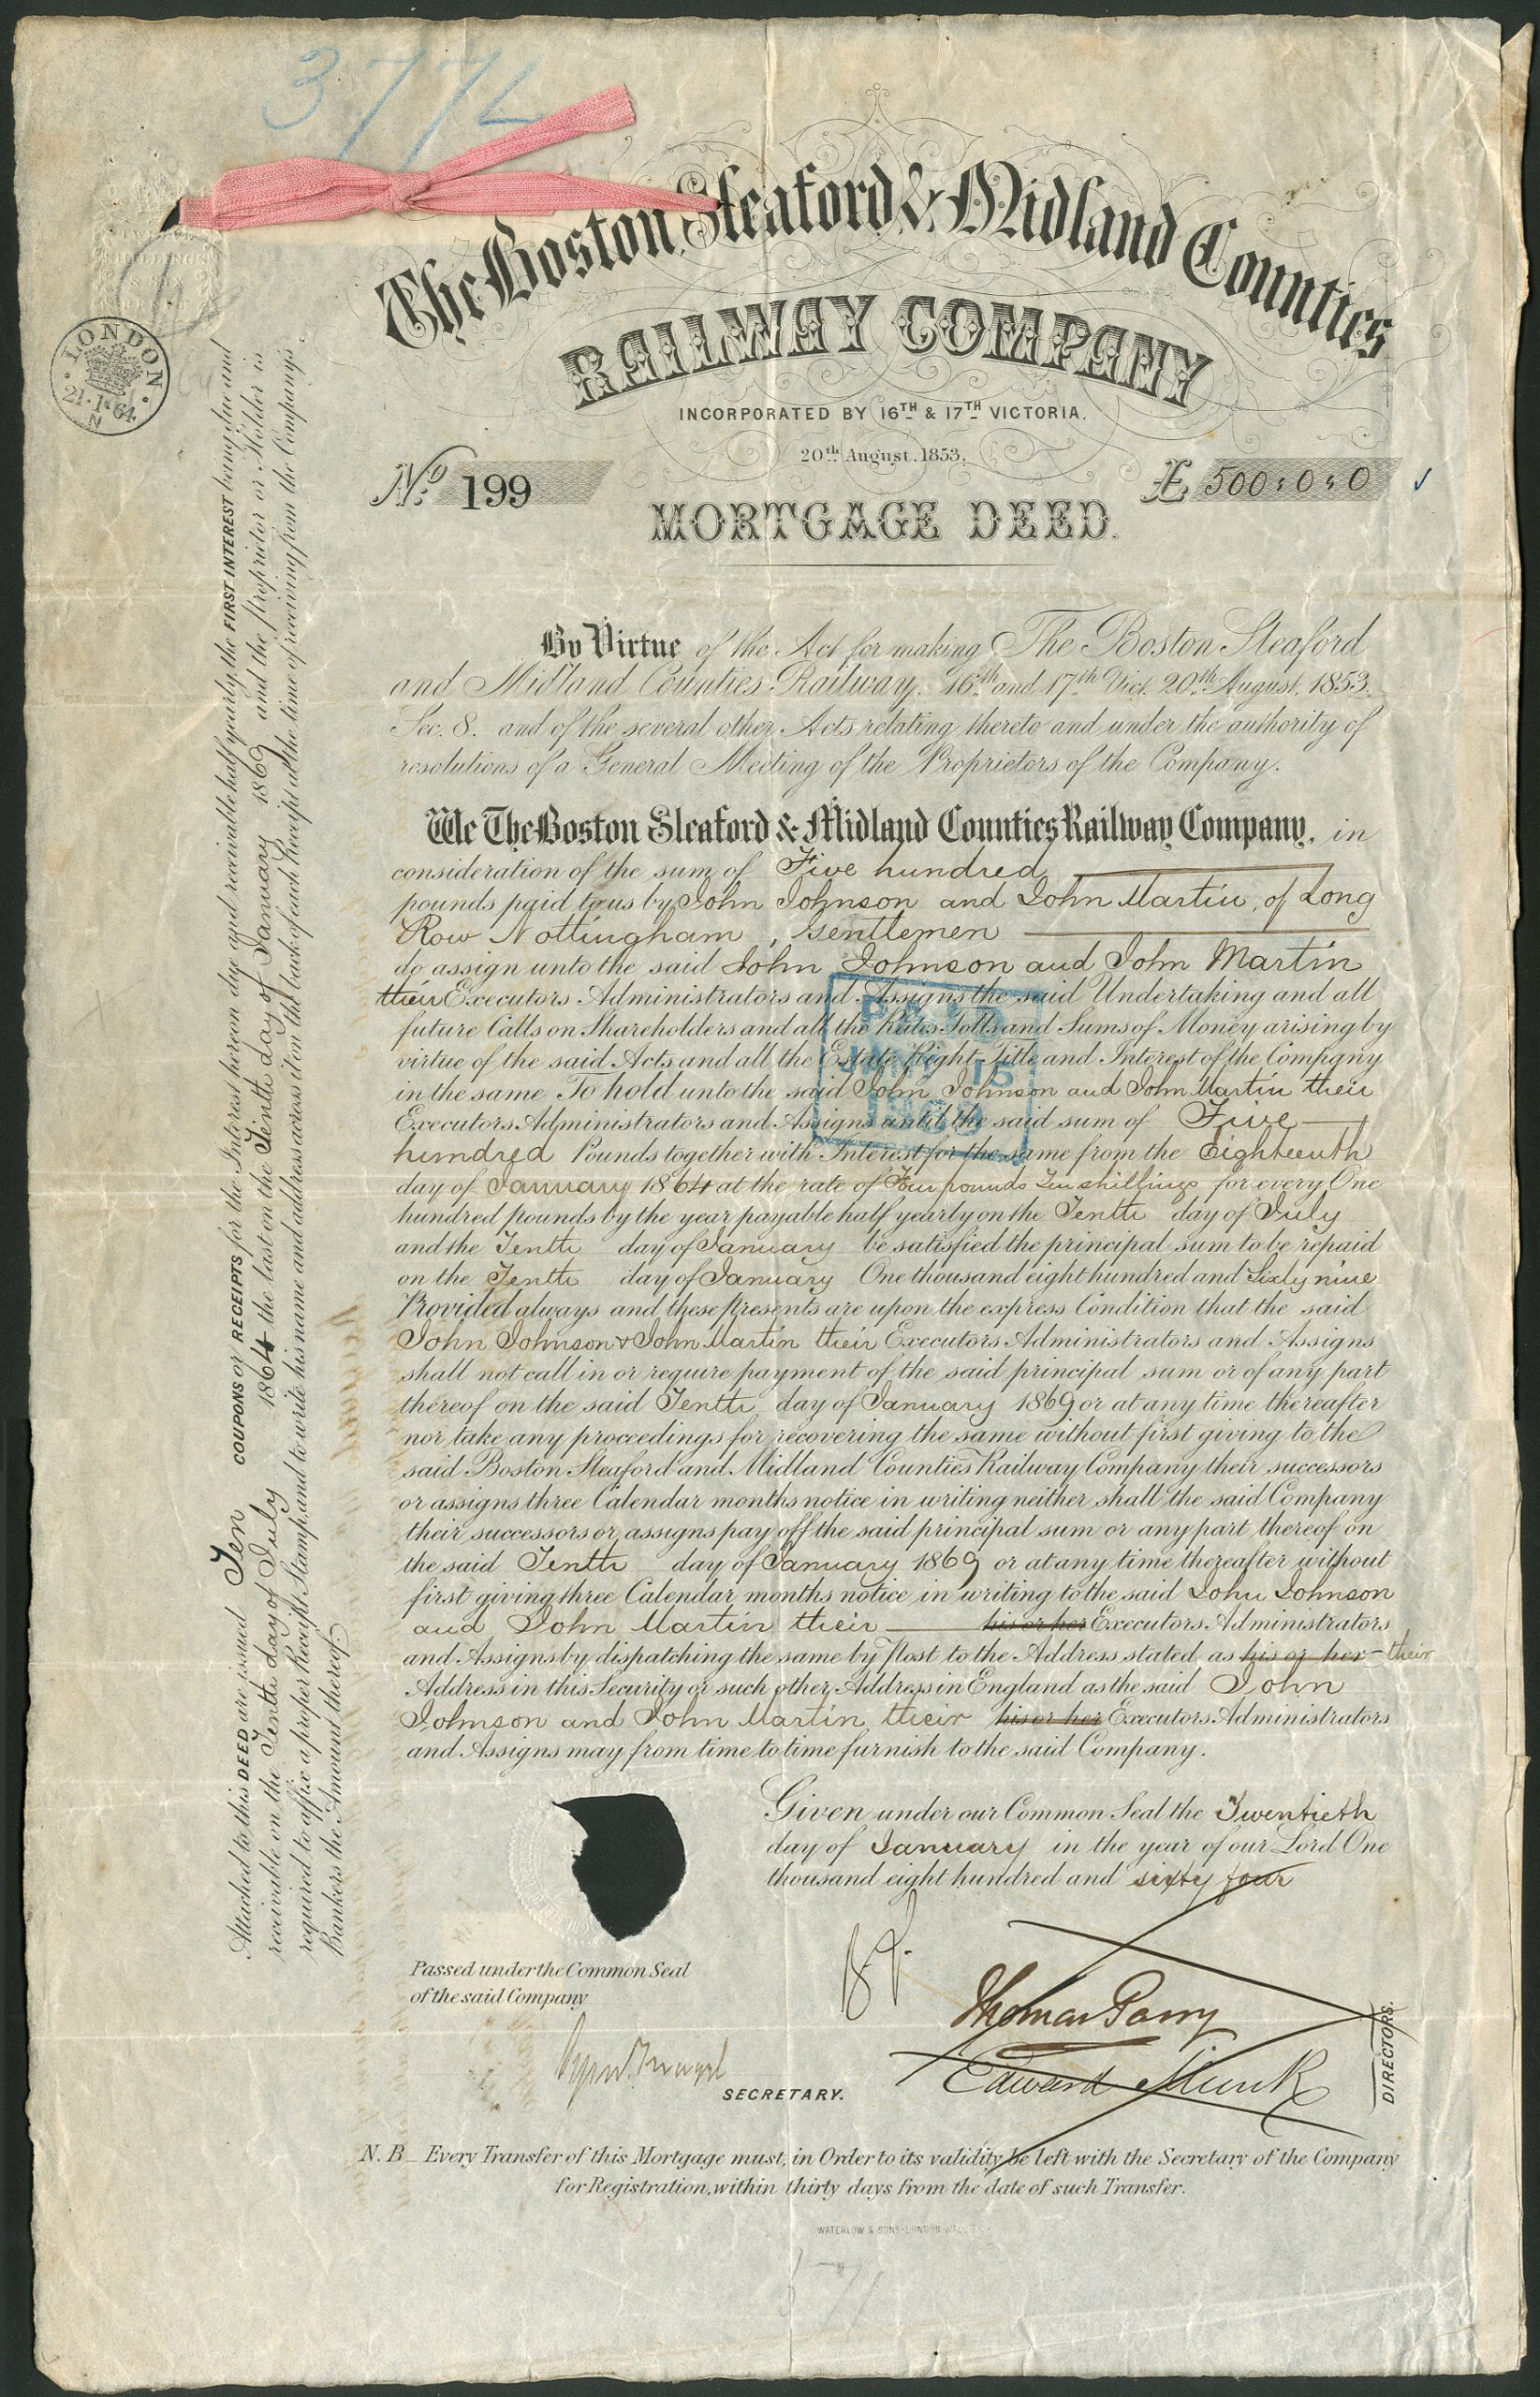 3772
The Boston, Sleaford & Midland Counties
RAILWAY COMPANY
INCORPORATED BY 16TH & 17TH VICTORIA.
20th August. 1853.
No. 199
£ 500:0:0
MORTGAGE DEED.
LONDON
21·1·64
N
By Virtue of the Act for making The Boston Sleaford
and Midland Counties Railway. 16th and 17th Vict. 20th August, 1853.
Sec. 8. and of the several other Acts relating thereto and under the authority of
resolutions of a General Meeting of the Proprietors of the Company.
We The Boston Sleaford & Midland Counties Railway Company, in
consideration of the sum of Five hundred
pounds paid to us by John Johnson and John Martin, of Long
Row Nottingham, Gentlemen
do assign unto the said John Johnson and John Martin
their Executors Administrators and Assigns the said Undertaking and all
future Calls on Shareholders and all the Rates Tolls and Sums of Money arising by
virtue of the said Acts and all the Estate Right Title and Interest of the Company
in the same To hold unto the said John Johnson and John Martin their
Executors Administrators and Assigns until the said sum of Five
hundred Pounds together with Interest for the same from the Eighteenth
day of January 1864 at the rate of Four pounds Ten shillings for every One
hundred pounds by the year payable half yearly on the Tenth day of July
and the Tenth day of January be satisfied the principal sum to be repaid
on the Tenth day of January One thousand eight hundred and Sixty nine
Provided always and these presents are upon the express Condition that the said
John Johnson & John Martin their Executors Administrators and Assigns
shall not call in or require payment of the said principal sum or of any part
thereof on the said Tenth day of January 1869 or at any time thereafter
nor take any proceedings for recovering the same without first giving to the
said Boston Sleaford and Midland Counties Railway Company their successors
or assigns three Calendar months notice in writing neither shall the said Company
their successors or assigns pay off the said principal sum or any part thereof on
the said Tenth day of January 1869 or at any time thereafter without
first giving three Calendar months notice in writing to the said John Johnson
and John Martin their his or her Executors Administrators
and Assigns by dispatching the same by Post to the Address stated as his or her their
Address in this Security or such other Address in England as the said John
Johnson and John Martin their his or her Executors Administrators
and Assigns may from time to time furnish to the said Company.
PAID
JAN 15
1869
Given under our Common Seal the Twentieth
day of January in the year of our Lord One
thousand eight hundred and sixty four
Passed under the Common Seal
of the said Company
SECRETARY.
Thomas Parry
Edward
DIRECTORS.
N.B. Every Transfer of this Mortgage must, in Order to its validity be left with the Secretary of the Company
for Registration, within thirty days from the date of such Transfer.
WATERLOW & SONS-LONDON WALL
Attached to this DEED are issued Ten COUPONS or RECEIPTS for the Interest hereon due and receivable half yearly, the FIRST INTEREST being due and
receivable on the Tenth day of July 1864 the last on the Tenth day of January 1869 and the proprietor or Holder is
required to affix a proper Receipt Stamp, and to write his name and address across it on the back of each Receipt at the time of receiving from the Company's
Bankers the Amount thereof.